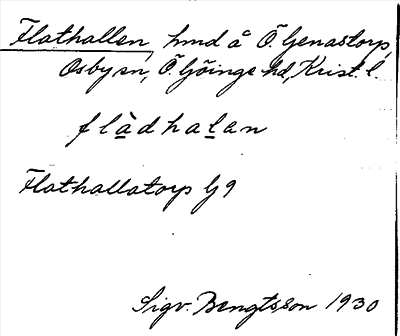 Flathallen, hmd å Ö. Genastorp,
Osby sn, Ö. Göinge hd, Krist. l.
flàdhalan
Flathallatorp G9
Sigv. Bengtsson 1930